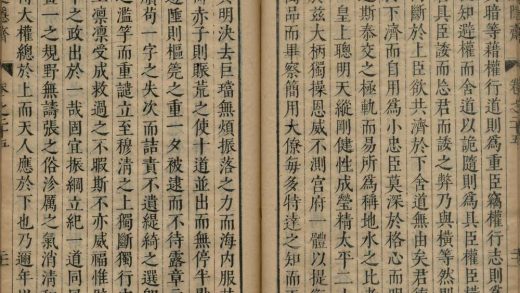 卷之十五
暗等藉權行道則爲重臣竊權行志則
知遊權而舍道以詭隨則爲具臣權
具臣諛而忘君而諛之弊乃與橫等然則
於上臣欲共濟於下舍道無由矣君德
下濟而自用爲小忠臣莫深於格心而
斯泰交之極軌而易所爲稱地水之比者
皇上聰明天縱剛健性成瑩精太平二
於茲大柄獨操恩威不測宮府一體以提衡
品而畢察簡用大僚每多特達之知而
明決去巨璫無煩振落之力而海內服其
亦子則賑荒之使十道並出而無停半
陲則樞筦之重一夕被逮而不待露章
苟一字之失次而詰責不遺緹綺之選
之濫竽而重譴立至穆清之上獨斷獨行
凜凜受成救過之不暇斯不亦威福惟
之政出於一哉固宜振綱立紀一道同
一之規野無譸張之俗沴厲之氣消清
大權總於上而天人應於下也乃邇年以
卷之十五